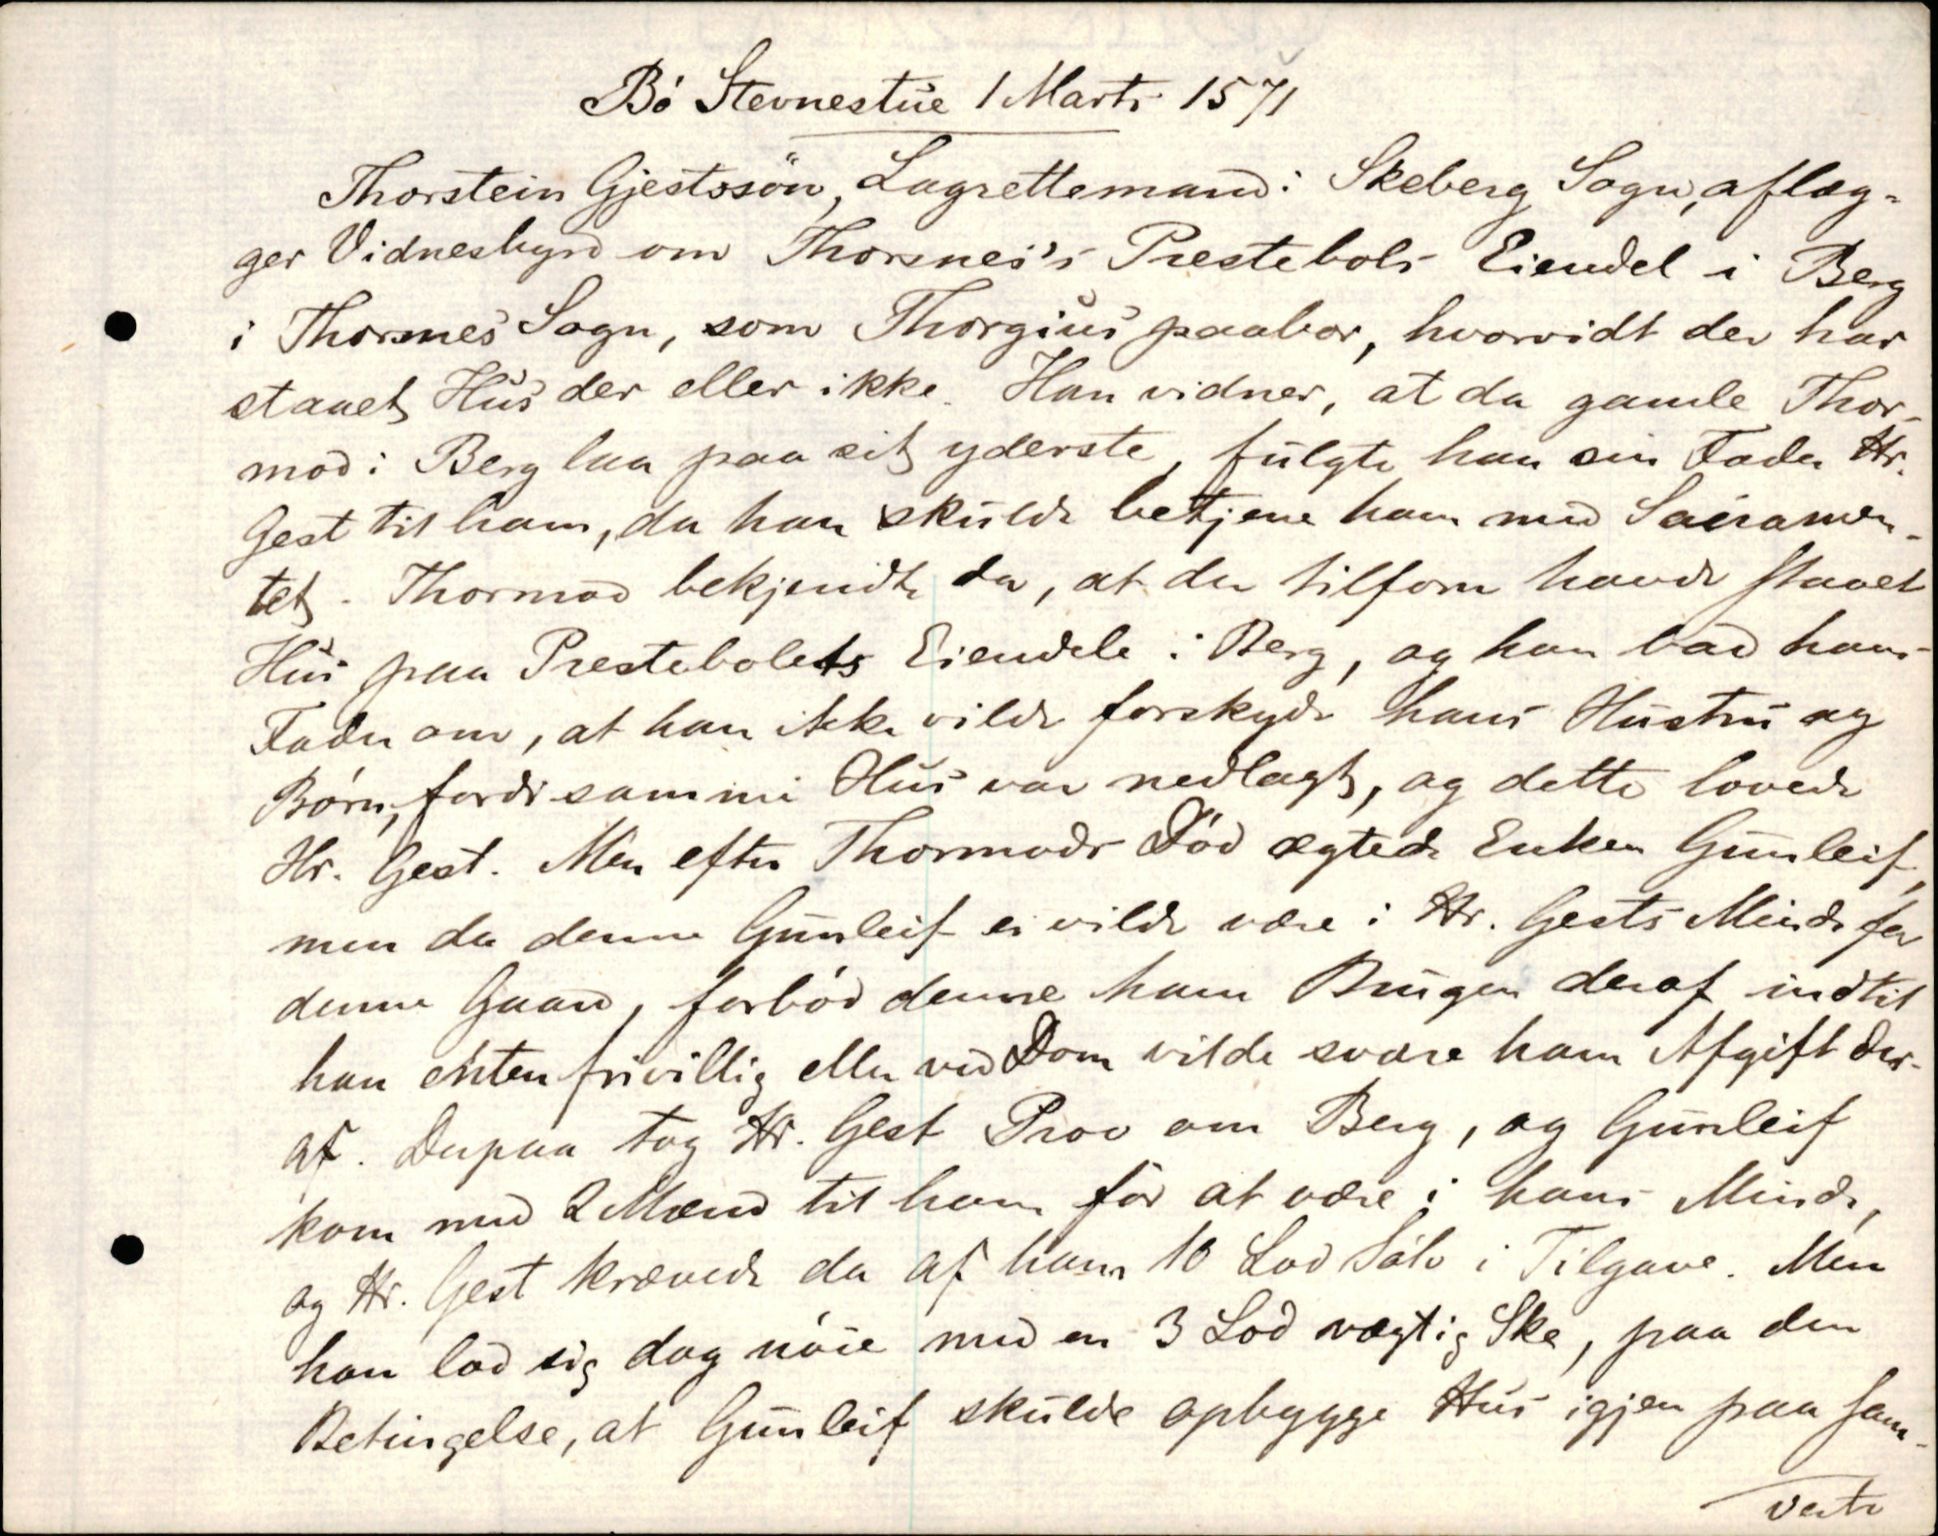 Bö Stevnestue 1 Marts 1571
Thorstein Gjestssön, Lagrettemand i Skeberg Sogn, aflæg-
ger Vidnesbyrd om Thorsnes's Prestebols Eiendel i Berg
i Thorsnes Sogn, som Thorgius paabor, hvorvidt der har
staaet Hus der eller ikke. Han vidner, at da gamle Thor-
mod i Berg laa paa sit yderste, fulgte han sin Fader Hr.
Gest til ham, da han skulde betjene ham med Sacramen-
tet. Thormod bekjendte da, at der tilforn havde staaet
Hus paa Prestebolets Eiendele i Berg, og han bad hans
Fader om, at han ikke vilde forskyde hans Hustru og
Børn, fordi samme Hus var nedlagt, og dette lovede
Hr. Gest. Men efter Thormods Död ægtede Enken Gunleif,
men da denne Gunleif ei vilde være i Hr. Gests Minde for
denne Gaard, forböd denne ham Brugen deraf indtil
han enten frivillig eller ved Dom vilde svare ham Afgift der-
af. Derpaa tog Hr. Gest Prov om Berg, og Gunleif
kom med 2 Mænd til ham for at være i hans Minde,
og Hr. Gest krævede da af ham 10 Lod Sölv i Tilgave. Men
han lod sig dog nöie med en 3 Lod vægtig Ske, paa den
Betingelse, at Gunleif skulde opbygge Hus igjen paa sam-
Verte